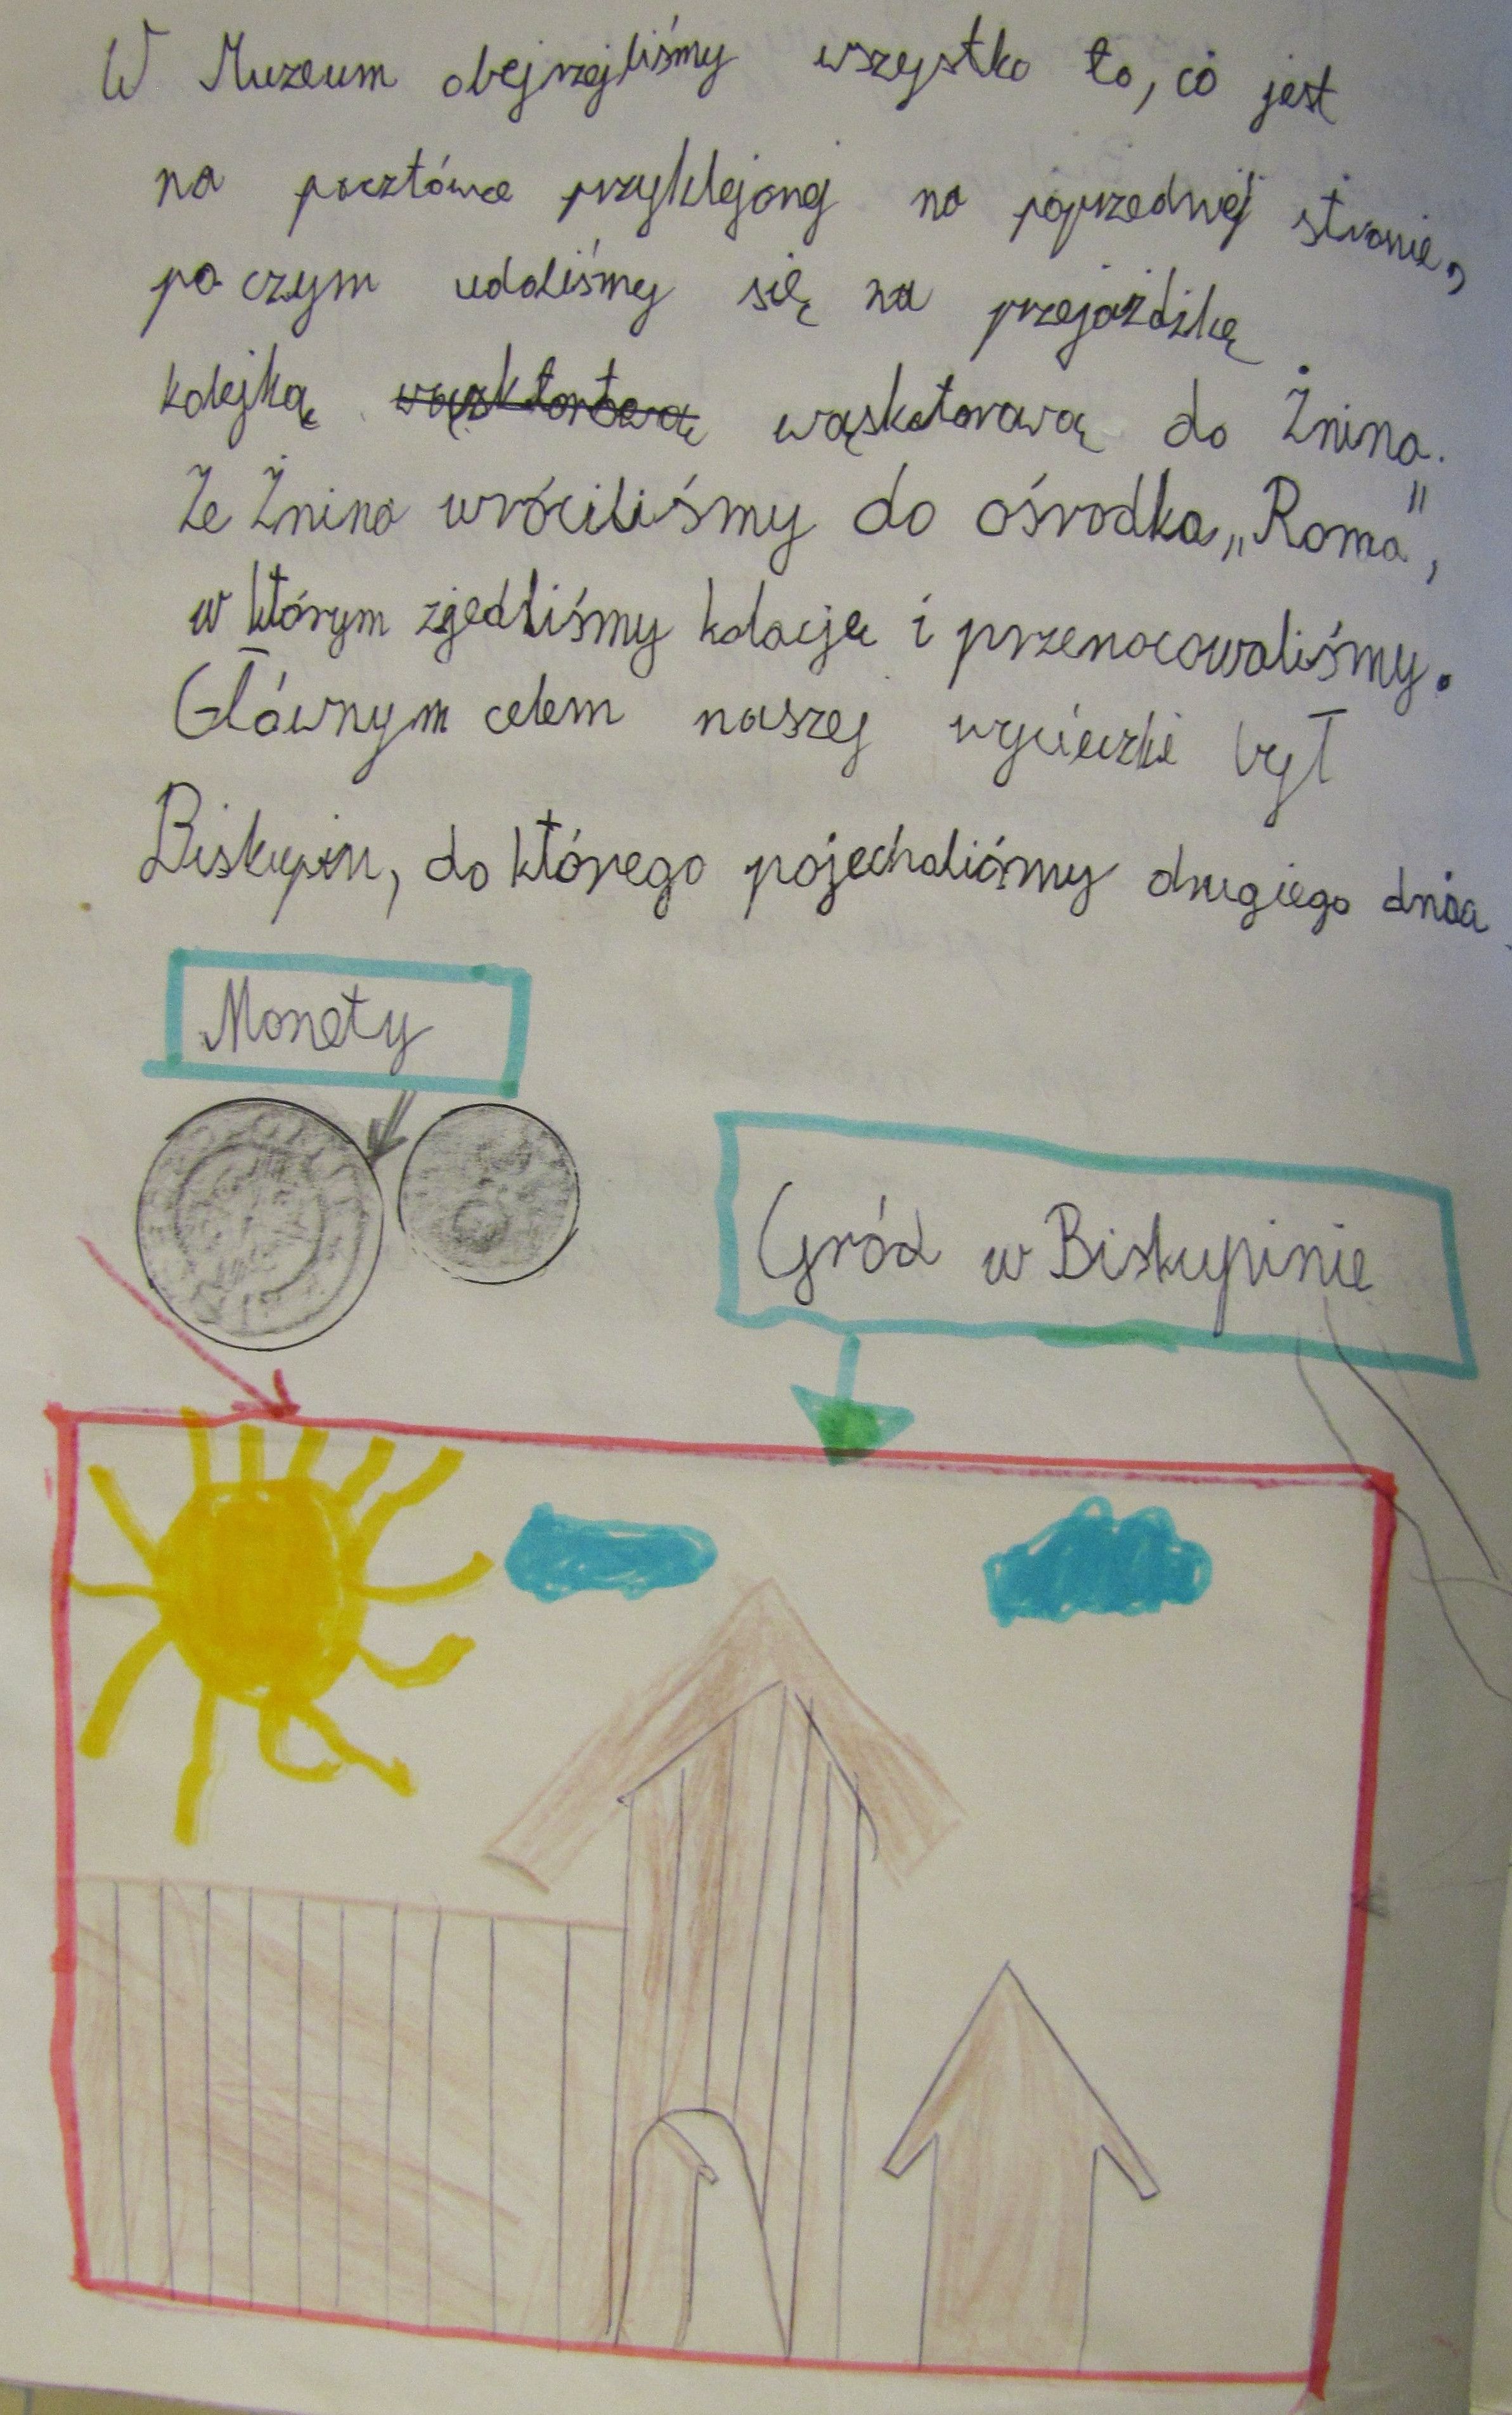 W Muzeum obejrzejliśmy wszystko to, co jest
na pocztówce przyklejonej na poprzedniej stronie,
po czym udaliśmy się na przejażdżkę
kolejką wązktorową wąskotorową do Żnina.
Ze Żnina wróciliśmy do ośrodka „Roma",
w którym zjedliśmy kolację i przenocowaliśmy.
Głównym celem naszej wycieczki był
Biskupin, do którego pojechaliśmy drugiego dnia.
Monety
Gród w Biskupinie